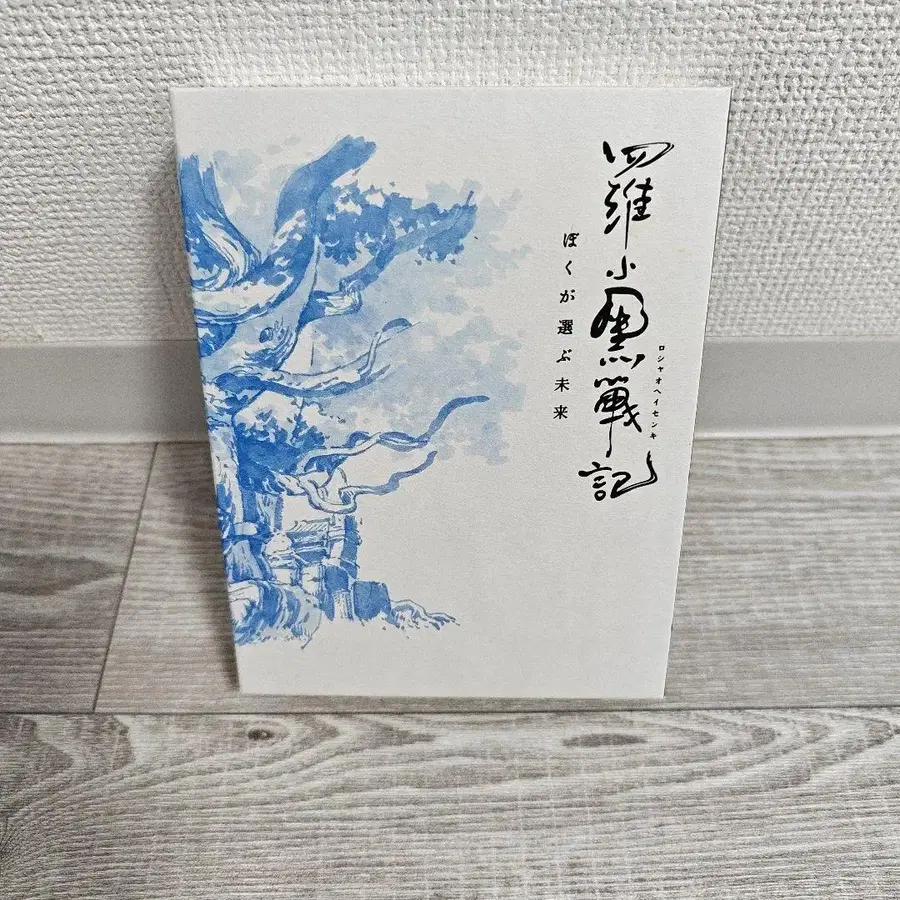 羅小黒戰記
ロシャオヘイセンキ
ぼくが選ぶ未来